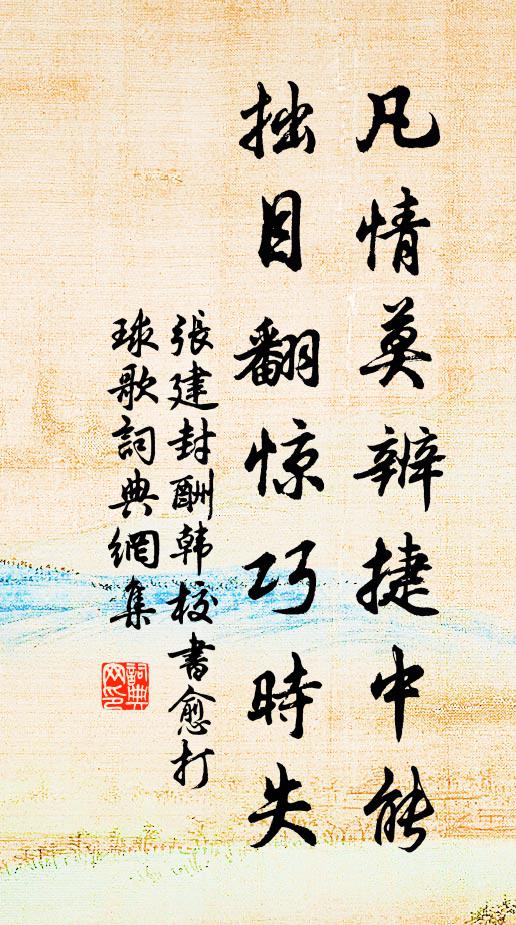 凡情莫辨捷中能
拙目翻惊巧時失
張建封酬韩校書愈打
球歌詞典網集
詞典網印